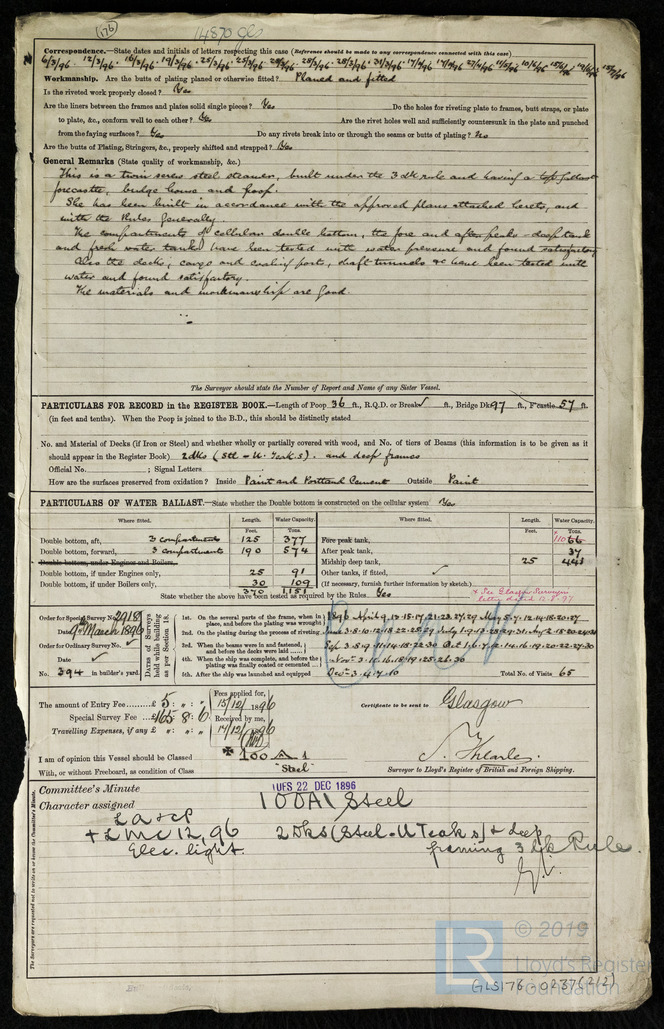 (176)
14870 gls
Correspondence.—State dates and initials of letters respecting this case (Reference should be made to any correspondence connected with this case)
6/3/96 12/3/96 16/3/96 19/3/96 25/3/96 25/3/96 28/3/96 28/3/96 31/3/96 17/4/96 17/4/96 27/4/96 10/6/96 15/6/96
Workmanship. Are the butts of plating planed or otherwise fitted? Planed and fitted
Is the riveted work properly closed? Yes
Are the liners between the frames and plates solid single pieces? Yes Do the holes for riveting plate to frames, butt straps, or plate
to plate, &c., conform well to each other? Yes Are the rivet holes well and sufficiently countersunk in the plate and punched
from the faying surfaces? Yes Do any rivets break into or through the seams or butts of plating? No
Are the butts of Plating, Stringers, &c., properly shifted and strapped? Yes
General Remarks (State quality of workmanship, &c.)
This is a twin screw steel steamer, built under the 3 dk rule and having a
forecastle, bridge house and poop.
She has been built in accordance with the approved plans attached hereto, and
with the Rules generally.
The compartments of cellular double bottom, the fore and after peaks - deep tank
and fresh water tanks have been tested with water pressure and found satisfactory
Also the decks, cargo and coaling ports, shaft tunnels &c have been tested with
water and found satisfactory.
The materials and workmanship are Good.
The Surveyor should state the Number of Report and Name of any Sister Vessel.
PARTICULARS FOR RECORD in the REGISTER BOOK.—Length of Poop 36 ft., R.Q.D. or Break ✓ ft., Bridge Dk 97 ft., F'castle 57 ft.
(in feet and tenths). When the Poop is joined to the B.D., this should be distinctly stated
No. and Material of Decks (if Iron or Steel) and whether wholly or partially covered with wood, and No. of tiers of Beams (this information is to be given as it
should appear in the Register Book) 2 dks (Stl - U. Teak.s). and deep frames
Official No. ; Signal Letters
How are the surfaces preserved from oxidation? Inside Paint and Portland Cement Outside Paint
PARTICULARS OF WATER BALLAST.—State whether the Double bottom is constructed on the cellular system Yes
Where fitted. Length. Water Capacity. Where fitted. Length. Water Capacity.
Feet. Tons. Feet. Tons.
Double bottom, aft, 3 compartments 125 377 Fore peak tank, 110 66
Double bottom, forward, 3 compartments 190 574 After peak tank, 37
Double bottom, under Engines and Boilers, Midship deep tank, 25 441
Double bottom, if under Engines only, 25 91 Other tanks, if fitted, ✓
Double bottom, if under Boilers only, 30 109 (If necessary, furnish further information by sketch.)
370 1151
State whether the above have been tested as required by the Rules Yes
* See Glasgow Surveyors
letter dated 12.8.97
Order for Special Survey No. 2918
Date 9th March 1896
Order for Ordinary Survey No. ✓
Date ✓
No. 394 in builder's yard.
DATES of Surveys held while building as per Section 18.
1st. On the several parts of the frame, when in place, and before the plating was wrought 1896 April 9.13.15.17.21.23.27.29 May 5.7.12.14.18.20.27
2nd. On the plating during the process of riveting June 3.8.10.12.18.22.25.29
3rd. When the beams were in and fastened, and before the decks were laid
4th. When the ship was complete, and before the plating was finally coated or cemented Nov. 3.10.16.18.19.25.26.30
5th. After the ship was launched and equipped Dec. 3.4.7.10 Total No. of Visits 65
The amount of Entry Fee £ 5 : " : " Fees applied for,
Special Survey Fee £165 : 8 : 6 15/12/1896
Travelling Expenses, if any £ " : " : " Received by me,
14/12/1896
Certificate to be sent to Glasgow
I am of opinion this Vessel should be Classed ✠ 100 A 1
With, or without Freeboard, as condition of Class "Steel"
Surveyor to Lloyd's Register of British and Foreign Shipping.
Committee's Minute TUES 22 DEC 1896
Character assigned 100A1 Steel
LA & CP
+ LMC 12.96 2 Dks (Steel - U Teak s) & deep
Elec. light. framing 3 Dk Rule.
The Surveyors are requested not to write on or below the Committee's Minute.
LR
© 2019
Lloyd's Register
Foundation
GLS176-0237(2/2)